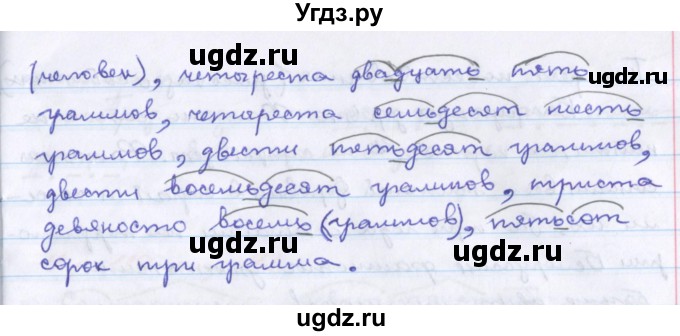 Угдз.ру
(человек), четыреста двадцать пять
граммов, четыреста семьдесят шесть
граммов, двести пятьдесят граммов,
двести восемьдесят граммов, триста
девяносто восемь (граммов), пятьсот
сорок три грамма.
ugdz.ru
ugdz.ru
ugdz.ru
ugdz.ru
ugdz.ru
ugdz.ru
ugdz.ru
ugdz.ru